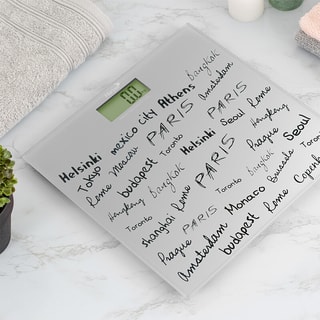 0.0
Helsinki Tokyo mexico city Athens Bangkok
Rome Moscou PARIS Amsterdam
Hongkong budapest Toronto PARIS Rome
Toronto Bangkok Helsinki Seoul Hongkong
shanghai Rome PARIS Prague Seoul
Prague PARIS Toronto Bangkok Toronto
Amsterdam Monaco Brussels
budapest Rome Copen